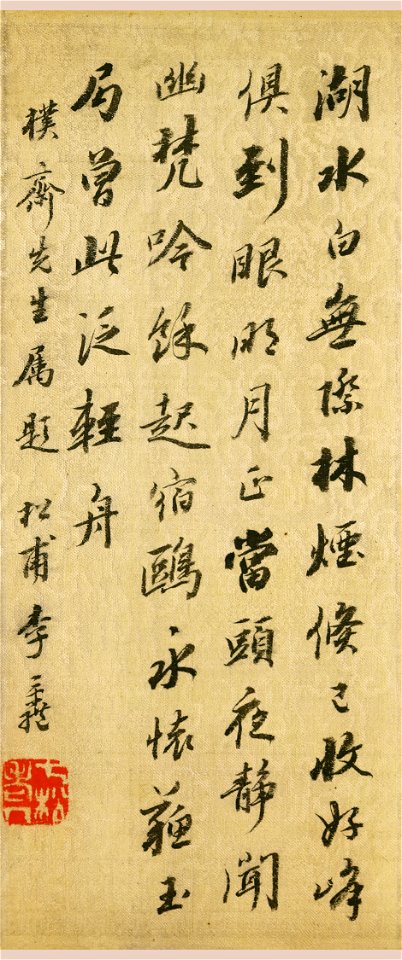 湖水白無際林煙倏已收好峰
俱到眼明月正當頭夜静聞
幽梵吟餘起宿鷗永懷蘇玉
局曾此泛輕舟
樸齋先生属題 松甫李